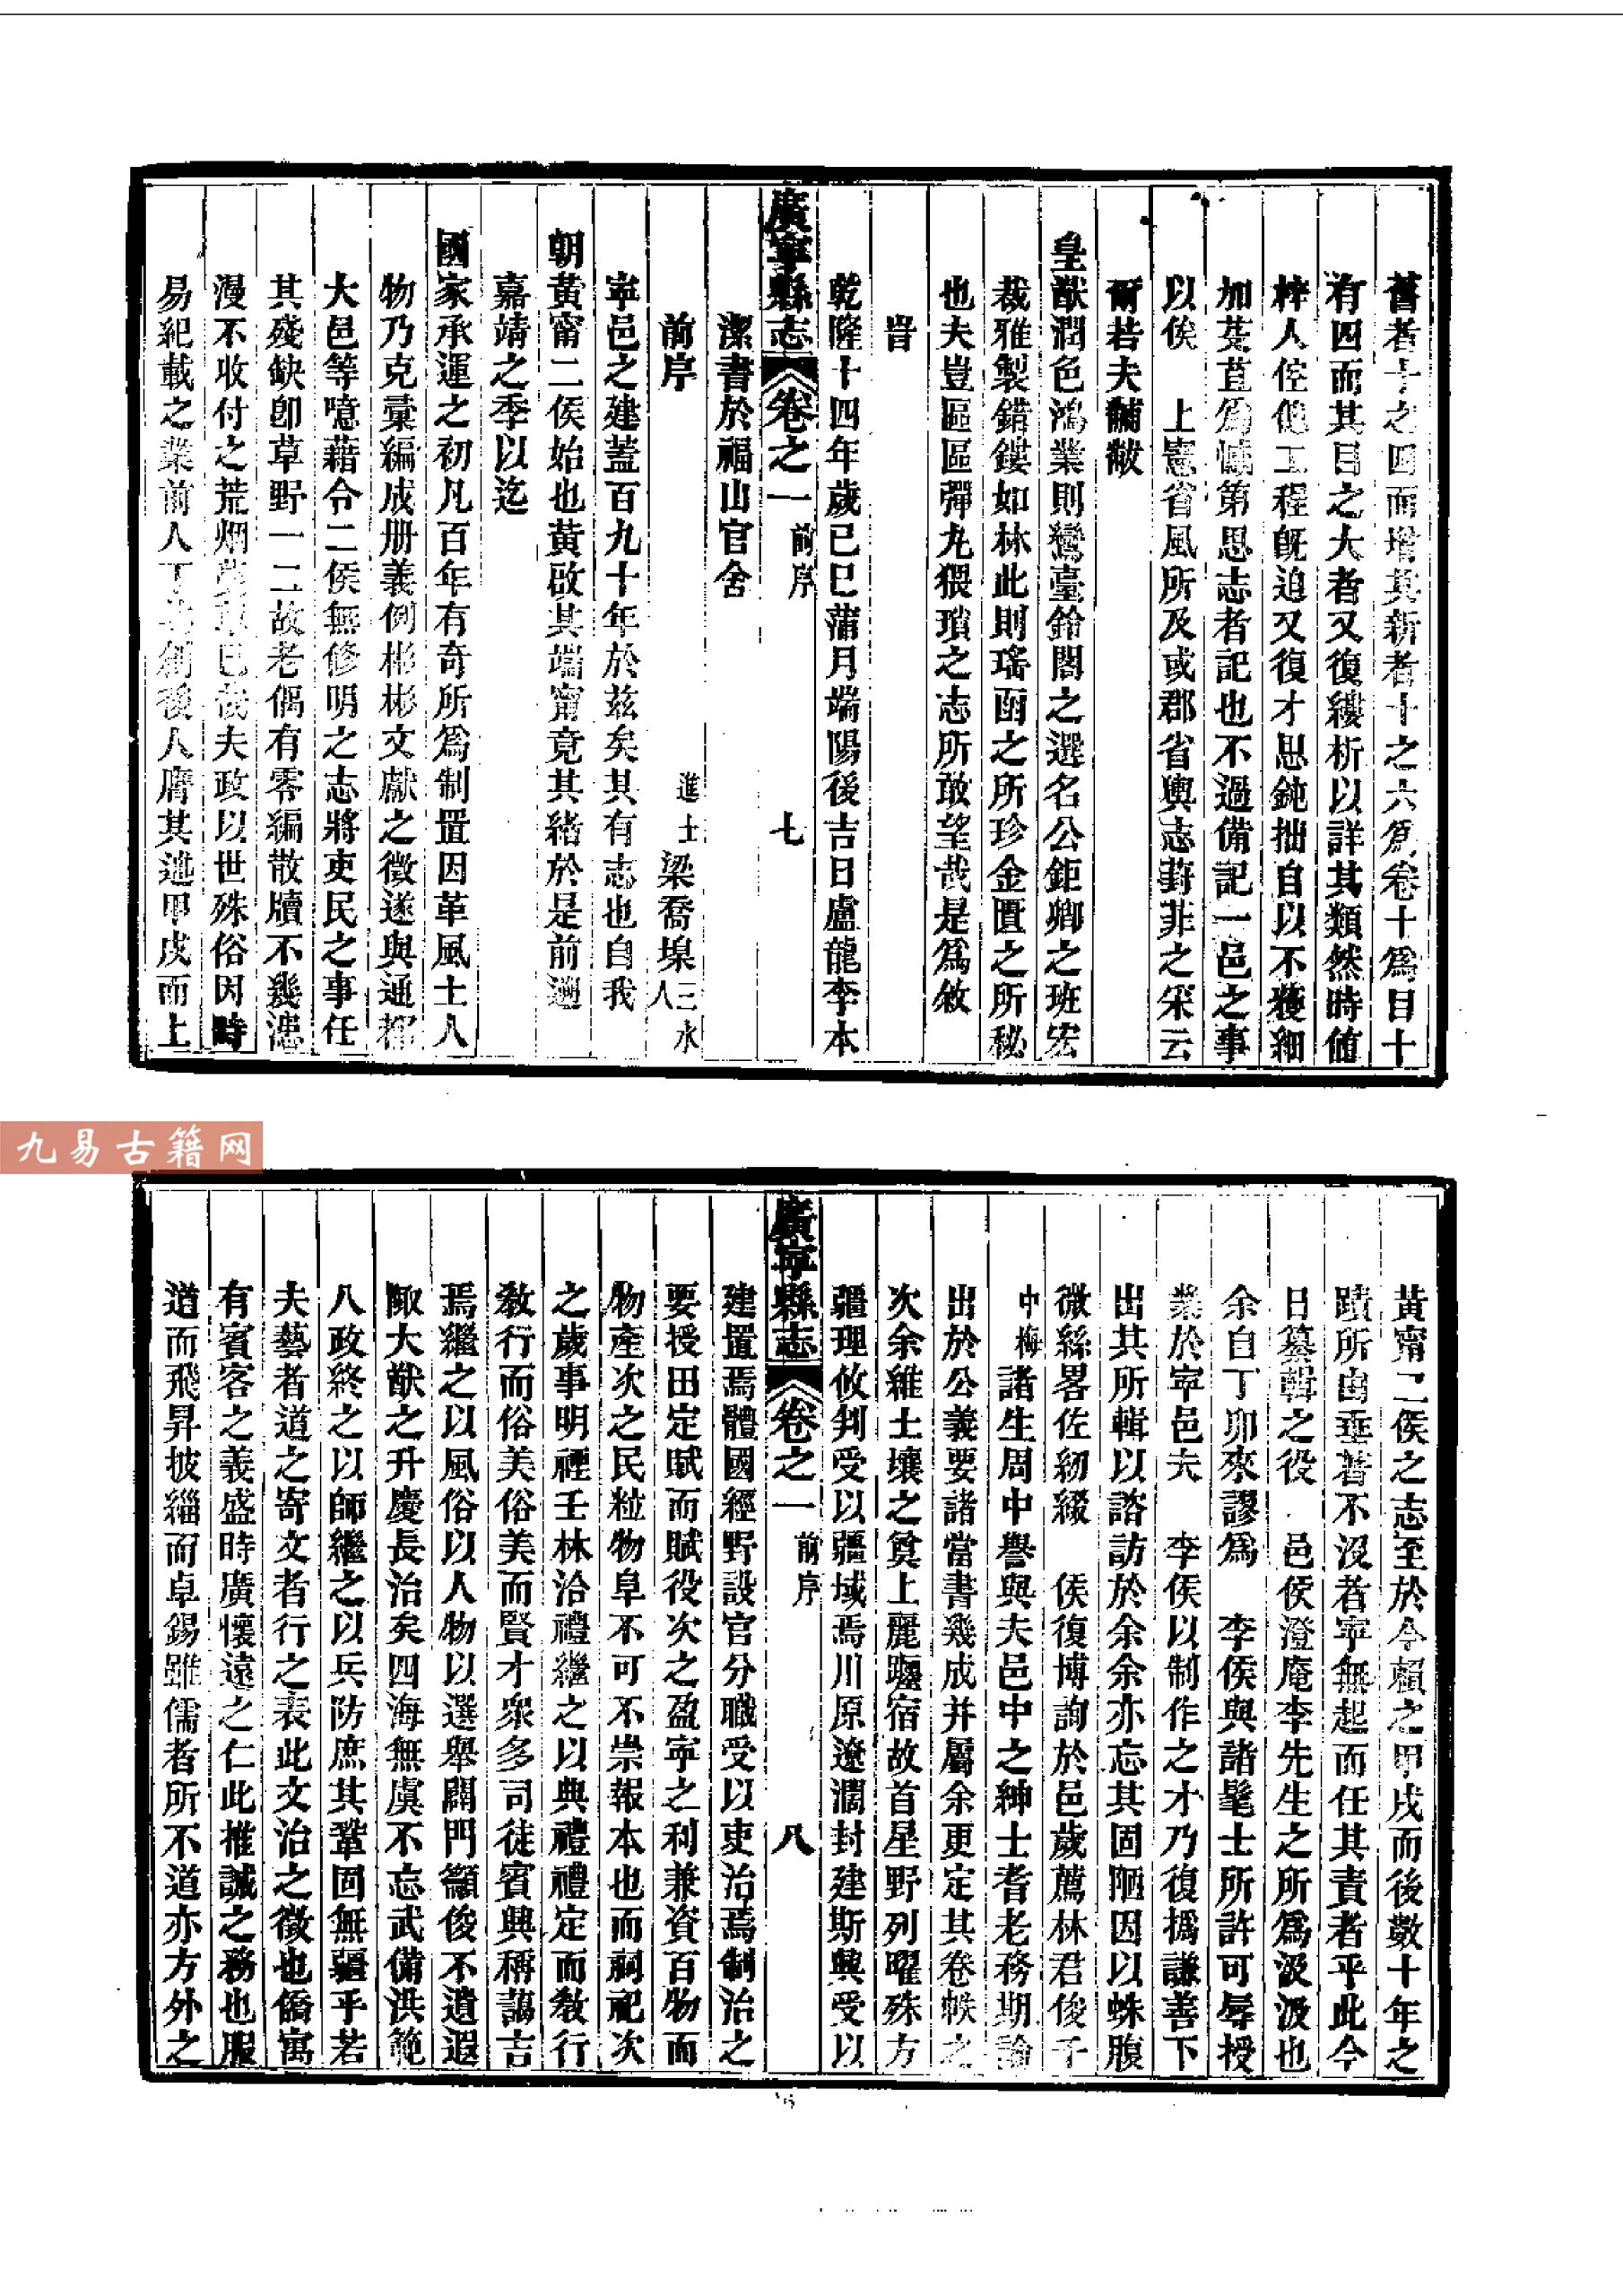 舊者十之四而增其新者十之六爲卷十爲目十
有四而其目之大者又復縷析以詳其類然時値
梓人侘傯工程旣迫又復才思鈍拙自以不獲細
加蒐苴爲慊第思志者記也不過備記一邑之事
以俟　上憲省風所及或郡省輿志葑菲之采云
爾若夫黼黻
皇猷潤色鴻業則鸞臺鈴閣之選名公鉅卿之班宏
裁雅製錯鏤如林此則瑤函之所珍金匱之所秘
也夫豈區區彈丸猥瑣之志所敢望哉是爲敘
旹
乾隆十四年歲已巳蒲月端陽後吉日盧龍李本
廣寧縣志　卷之一　前序　七
潔書於福山官舍
前序　進士梁喬堢三水人
寧邑之建蓋百九十年於兹矣其有志也自我
朝黃甯二侯始也黃啟其端甯竟其緒於是前遡
嘉靖之季以迄
國家承運之初凡百年有奇所爲制置因革風土人
物乃克彙編成册義例彬彬文獻之徵遂與通
大邑等噫藉令二侯無修明之志將吏民之事任
其殘缺卽草野一二故老偶有零編散牘不幾漶
漫不收付之荒烟蔓草已哉夫政以世殊俗因時
易紀載之業前人丁其創後人膺其遞甲戌而上
黃甯二侯之志至於今賴之甲戌而後數十年之
蹟所由垂著不沒者寧無起而任其責者乎此今
日纂輯之役　邑侯澄庵李先生之所爲汲汲也
余自丁卯來謬爲　李侯與諸髦士所許可辱授
業於寧邑夫　李侯以制作之才乃復撝謙善下
出其所輯以諮訪於余余亦忘其固陋因以蛛腹
微絲畧佐紉綴　侯復博詢於邑歲薦林君俊予
中梅諸生周中譽與夫邑中之紳士耆老務期論
出於公義要諸當書幾成并屬余更定其卷帙之
次余維土壤之奠上麗躔宿故首星野列曜殊方
疆理攸判受以疆域焉川原遼濶封建斯興受以
廣寧縣志　卷之一　前序　八
建置焉體國經野設官分職受以吏治焉制治之
要授田定賦而賦役次之盈寧之利兼資百物而
物產次之民粒物阜不可不崇報本也而祠祀次
之歲事明禋壬林洽禮繼之以典禮禮定而敎行
敎行而俗美俗美而賢才衆多司徒賓興稱藹吉
焉繼之以風俗以人物以選舉闢門籲俊不遺遐
陬大猷之升慶長治矣四海無虞不忘武備洪範
八政終之以師繼之以兵防庶其鞏固無疆乎若
夫藝者道之寄文者行之表此文治之徵也僑寓
有賓客之義盛時廣懷遠之仁此推誠之務也服
道而飛昇披緇而卓錫雖儒者所不道亦方外之
九易古籍网